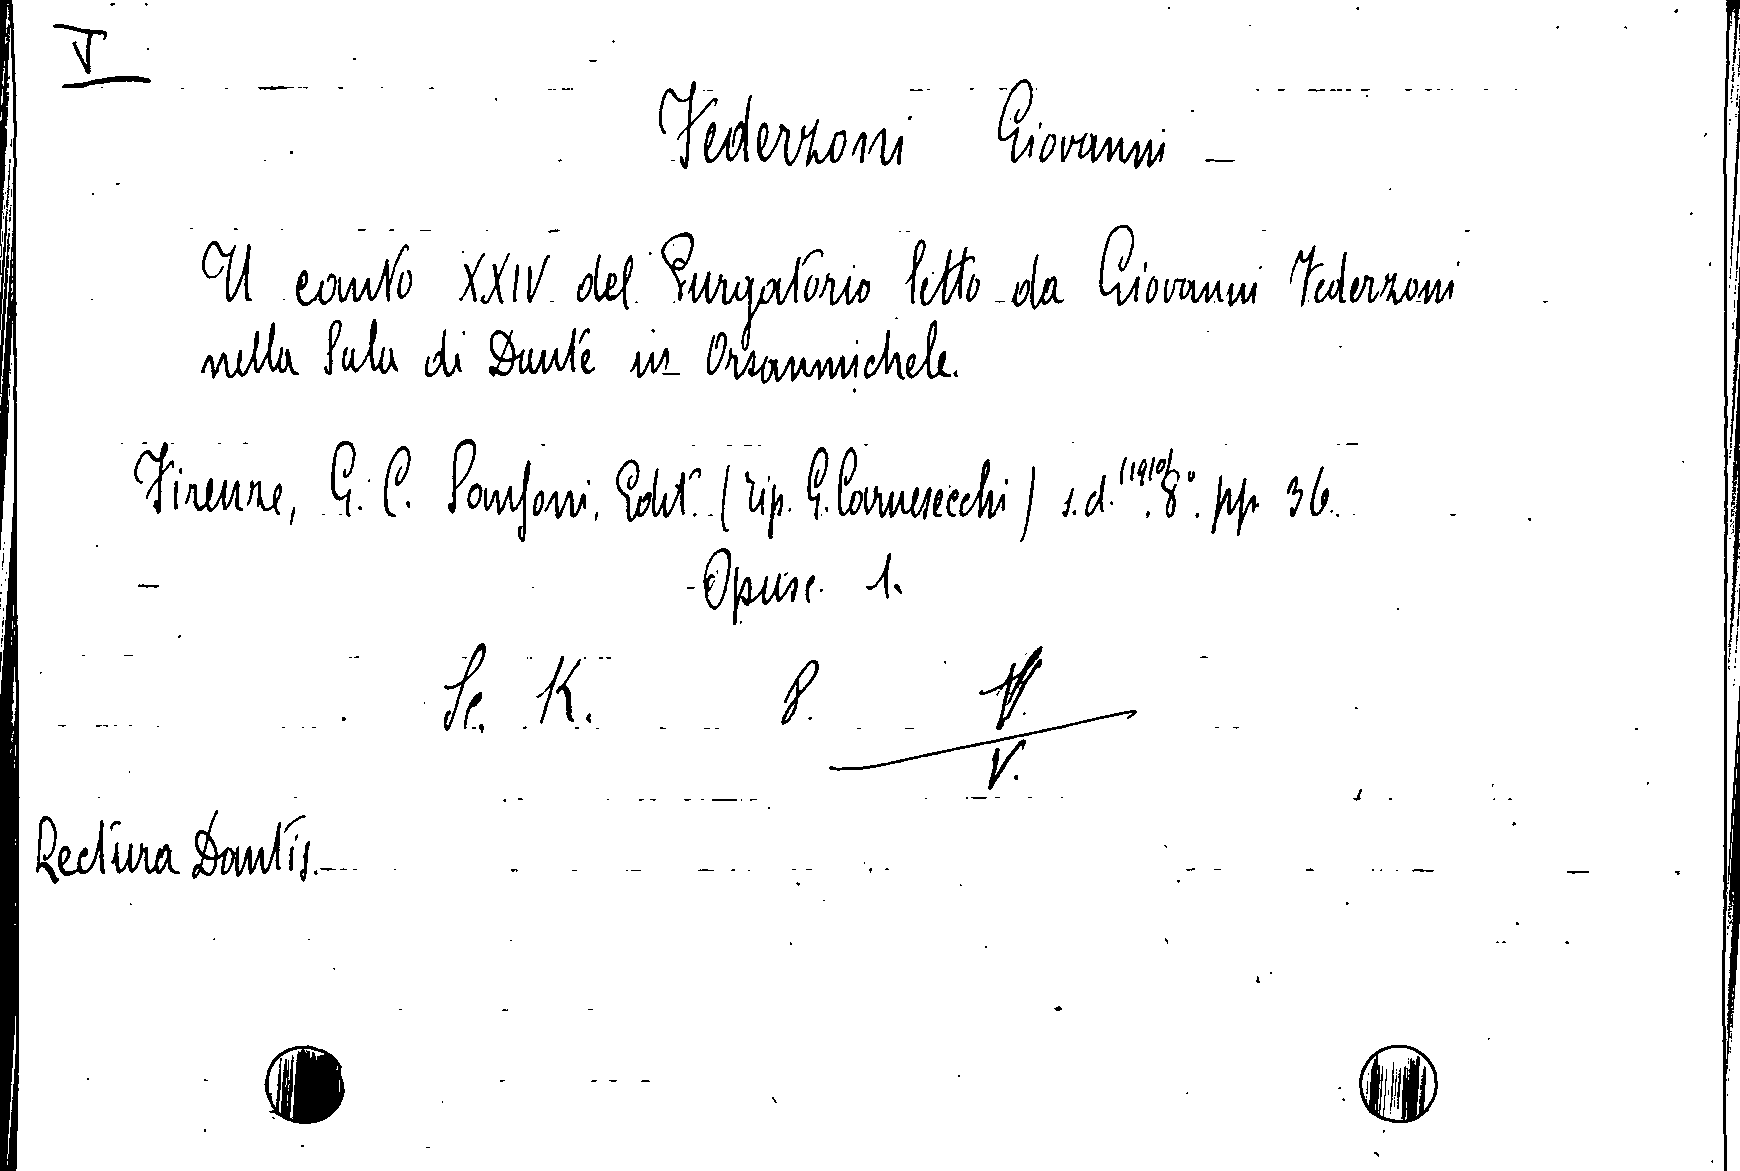 V
Federzoni Giovanni -
Il canto XXIV del Purgatorio letto da Giovanni Federzoni
nella Sala di Dante in Orsanmichele.
Firenze, G. C. Sansoni, Edit. (tip. G. Carnesecchi) s.d. (1910) 8°. pp. 36.
Opusc. 1.
Sc. K. 8.
V.
Lectura Dantis.